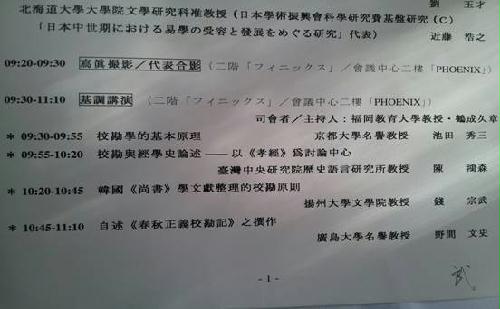 劉　玉才
北海道大學大學院文學研究科准教授（日本學術振興會科學研究費基盤研究(C)
「日本中世期における易學の受容と發展をめぐる研究」代表）
近藤　浩之
09:20-09:30　高眞撮影／代表合影（二階「フィニックス」／會議中心二樓「PHOENIX」）
09:30-11:10　基調講演（二階「フィニックス」／會議中心二樓「PHOENIX」）
司會者／主持人：福岡教育大學教授・鶴成久章
* 09:30-09:55　校勘學的基本原理　京都大學名譽教授　池田　秀三
* 09:55-10:20　校勘與經學史論述——以《孝經》爲討論中心
臺灣中央研究院歷史語言研究所教授　陳　鴻森
* 10:20-10:45　韓國《尚書》學文獻整理的校勘原則
揚州大學文學院教授　錢　宗武
* 10:45-11:10　自述《春秋正義校勘記》之撰作
廣島大學名譽教授　野間　文史
- 1 -
武